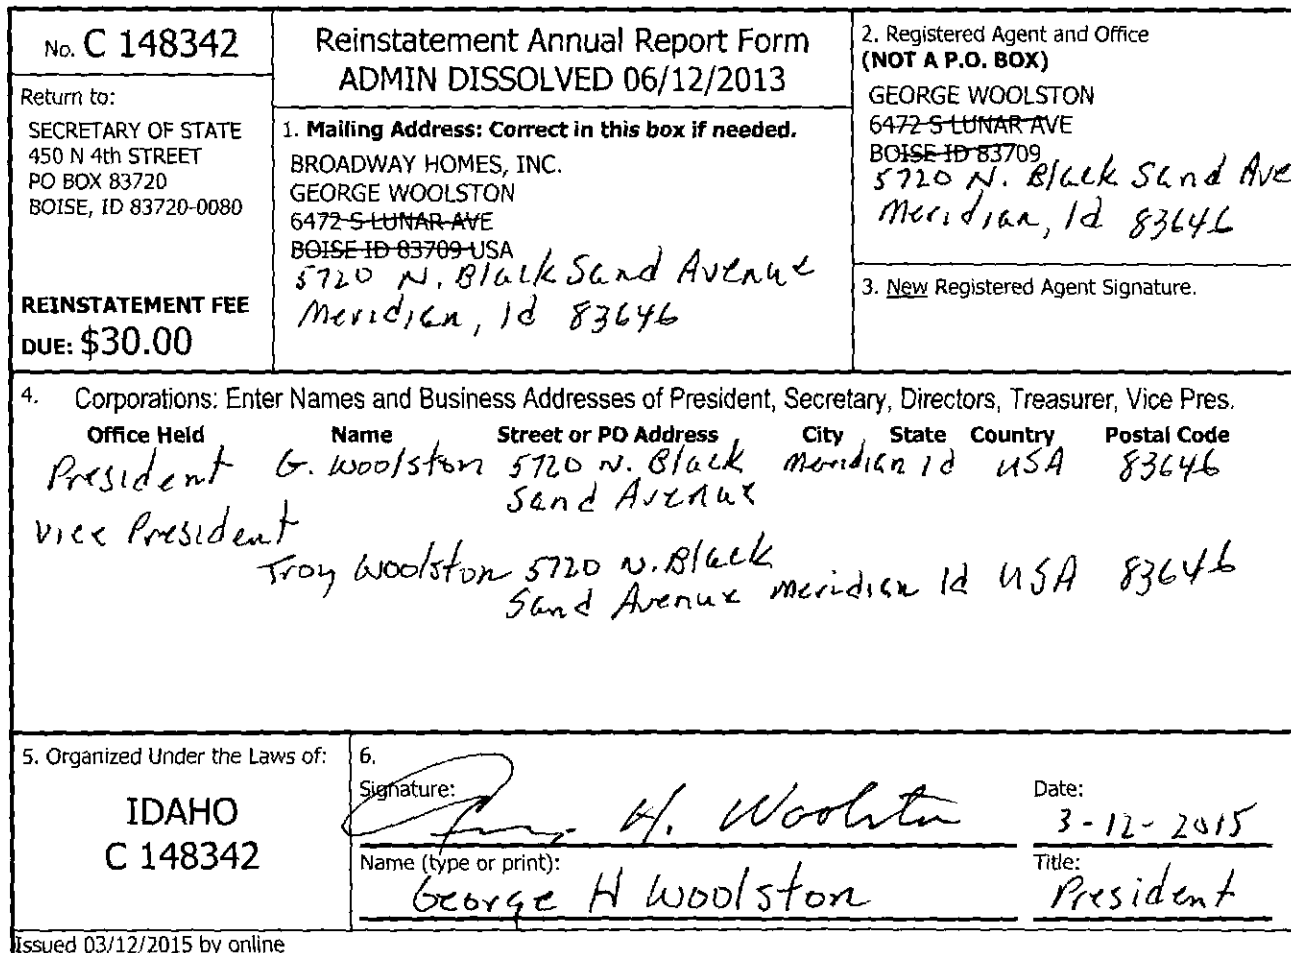 No. C 148342
Return to:
SECRETARY OF STATE
450 N 4th STREET
PO BOX 83720
BOISE, ID 83720-0080
REINSTATEMENT FEE
DUE: $30.00
Reinstatement Annual Report Form
ADMIN DISSOLVED 06/12/2013
1. Mailing Address: Correct in this box if needed.
BROADWAY HOMES, INC.
GEORGE WOOLSTON
6472 S LUNAR AVE
BOISE ID 83709 USA
5720 N. Black Sand Avenue
Meridian, Id 83646
2. Registered Agent and Office
(NOT A P.O. BOX)
GEORGE WOOLSTON
6472 S LUNAR AVE
BOISE ID 83709
5720 N. Black Sand Ave
Meridian, Id 83646
3. New Registered Agent Signature.
4. Corporations: Enter Names and Business Addresses of President, Secretary, Directors, Treasurer, Vice Pres.
Office Held Name Street or PO Address City State Country Postal Code
President G. Woolston 5720 N. Black Meridian Id USA 83646
Sand Avenue
Vice President
Troy Woolston 5720 N. Black
Sand Avenue Meridian Id USA 83646
5. Organized Under the Laws of:
IDAHO
C 148342
6.
Signature: H. Woolston
Date:
3-12-2015
Name (type or print):
George H Woolston
Title:
President
Issued 03/12/2015 by online